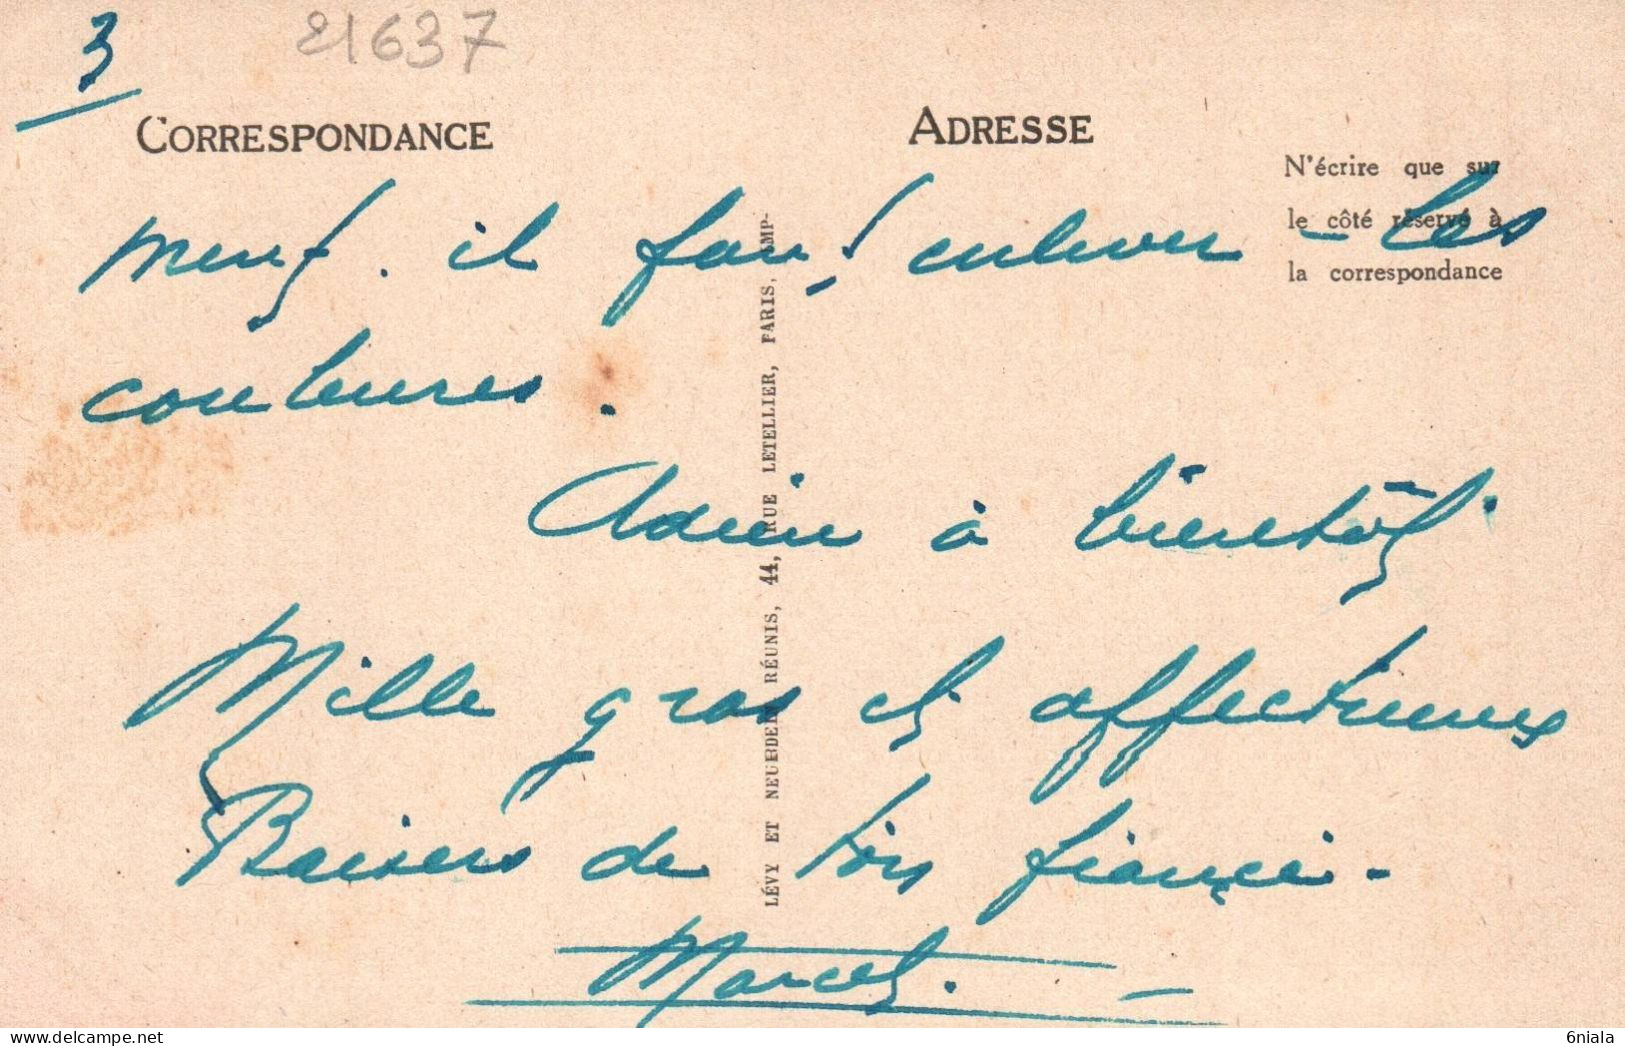 3
21637
CORRESPONDANCE
ADRESSE
N'écrire que sur
le côté réservé à
la correspondance
neuf. il faut enlever - les
couleures.
Adieu à bientôt.
Mille gros et affectueux
Baisers de ton fiancé -
Marcel.
LÉVY ET NEURDEIN RÉUNIS, 44, RUE LETELLIER, PARIS, IMP-
delcampe.net
6niala